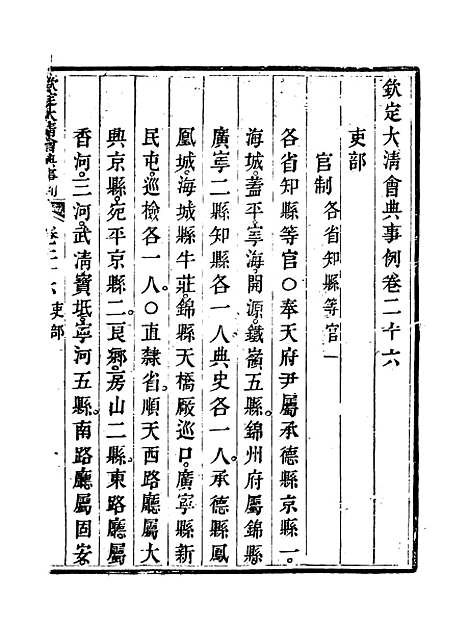 欽定大清會典事例卷二十六
吏部
官制 各省知縣等官一
各省知縣等官○奉天府尹屬承德縣京縣一。
海城。蓋平。寧海。開源。鐵嶺五縣。錦州府屬錦縣。
廣寧二縣知縣各一人。典史各一人。承德縣鳳
凰城。海城縣牛莊。錦縣天橋厰巡口。廣寧縣新
民屯。巡檢各一人。○直隸省。順天西路廳屬大
興京縣。宛平京縣二。良鄉。房山二縣。東路廳屬
香河。三河。武清。寶坻。寧河五縣。南路廳屬固安
欽定大清會典事例 卷二十六 吏部